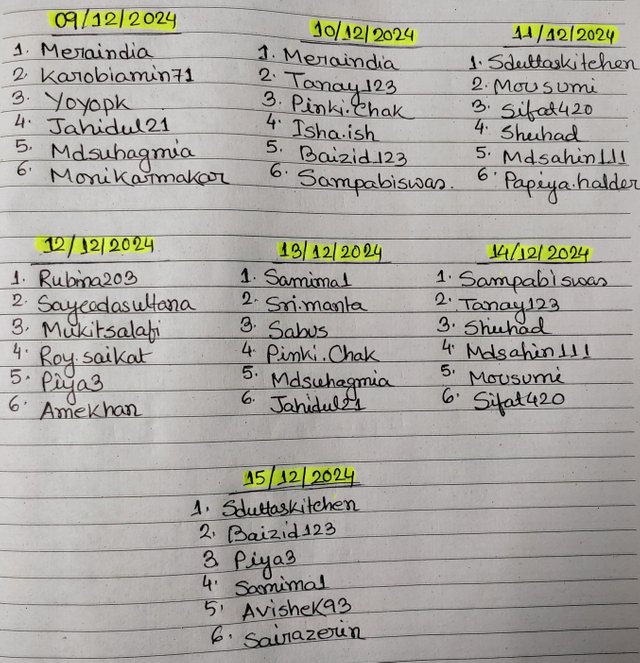 09/12/2024
1. Meraindia
2. Karobiamin71
3. Yoyopk
4. Jahidul21
5. Mdsuhagmia
6. Monikarmakar
10/12/2024
1. Meraindia
2. Tanay123
3. Pinki.Chak
4. Isha.ish
5. Baizid123
6. Sampabiswas.
11/12/2024
1. Sduttaskitchen
2. Mousumi
3. Sifat420
4. Shuhad
5. Mdsahin111
6. Papiya.halder
12/12/2024
1. Rubina203
2. Sayeedasultana
3. Mukitsalafi
4. Roy.saikat
5. Piya3
6. Amekhan
13/12/2024
1. Samima1
2. Sri.manta
3. Sabus
4. Pinki.Chak
5. Mdsuhagmia
6. Jahidul21
14/12/2024
1. Sampabiswas
2. Tanay123
3. Shuhad
4. Mdsahin111
5. Mousumi
6. Sifat420
15/12/2024
1. Sduttaskitchen
2. Baizid123
3 Piya3
4. Samima1
5. Avishek93
6. Sairazerin